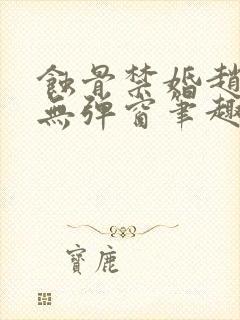 蝕骨禁婚趙
無彈窗筆趣
寶鹿